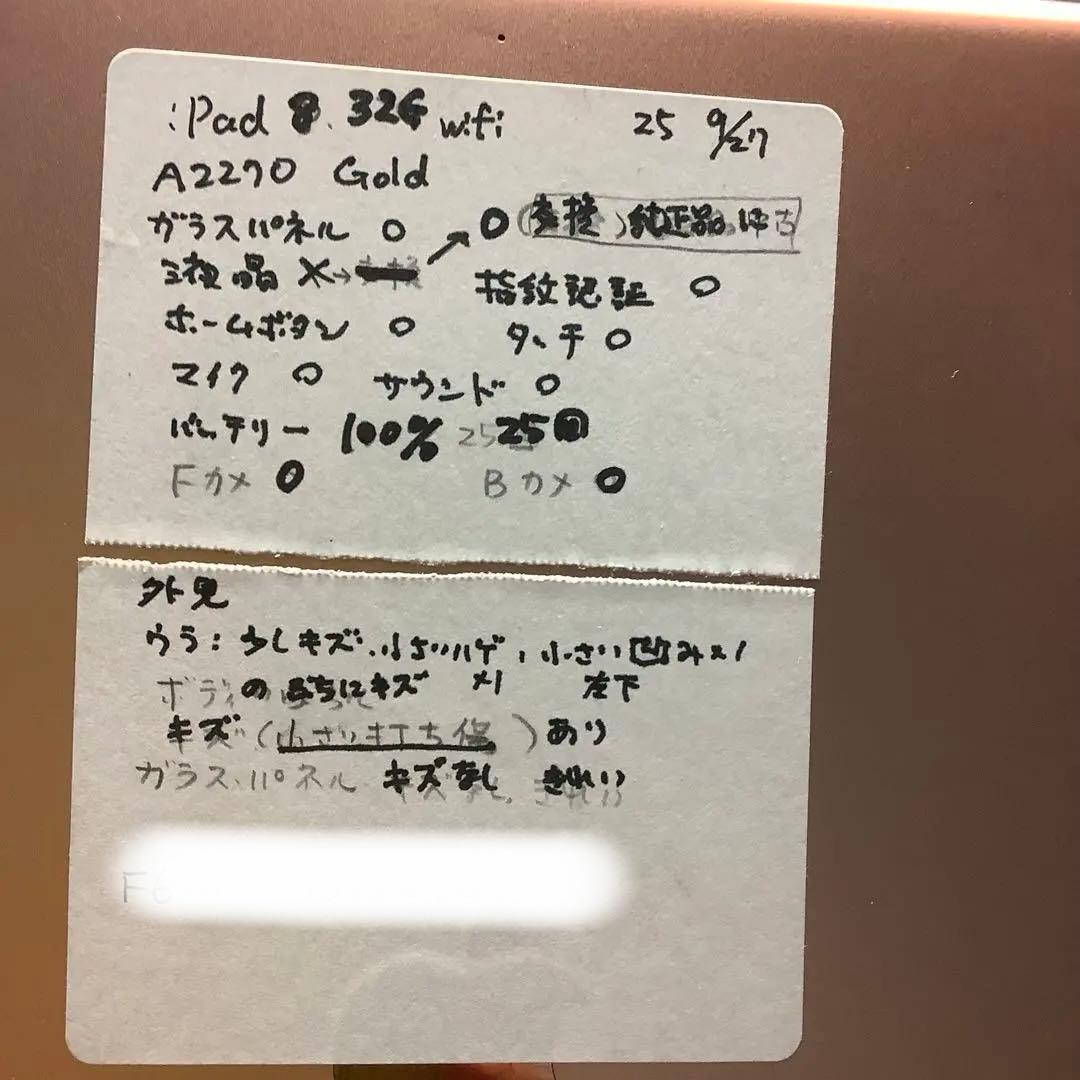 iPad 8. 32G wifi 25 9/27
A2270 Gold
ガラスパネル ○
液晶 X→ ○ (交換) 純正品 中古
指紋認証 ○
ホームボタン ○ タッチ ○
マイク ○ サウンド ○
バッテリー 100% 25回
Fカメ ○ Bカメ ○
外見
ウラ: 少しキズ、小さいハゲ、小さい凹み×1
ボディのふちにキズ ×1 左下
キズ(小さい打ち傷)あり
ガラスパネル キズなし きれい